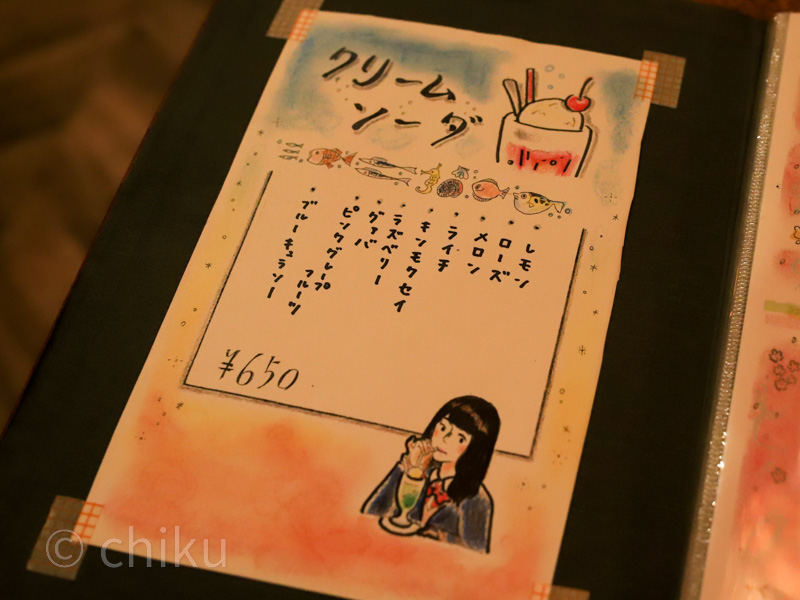 クリーム
ソーダ
レモン
ローズ
メロン
ライチ
キンモクセイ
ラズベリー
グァバ
ピンクグレープ
フルーツ
ブルーキュラソー
¥650
© chiku